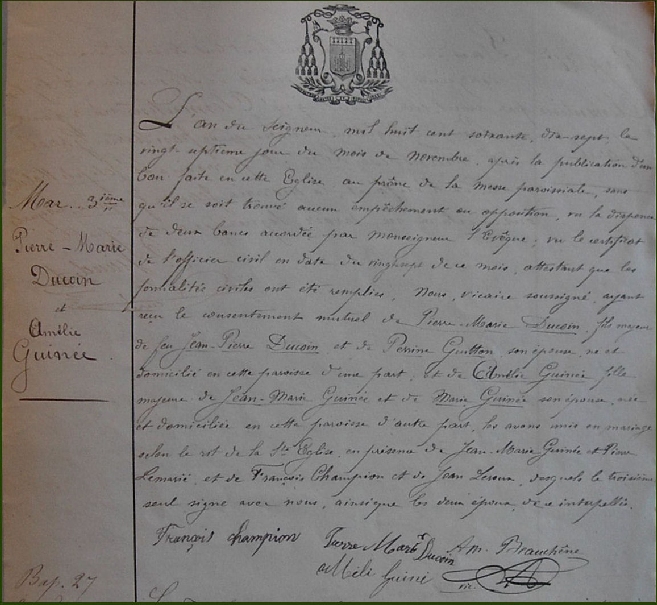 L'an du Seigneur, mil huit cent soixante, dix-sept, le
vingt septième jour du mois de Novembre, après la publication d'un
ban faite en cette Eglise au prône de la messe paroissiale, sans
qu'il se soit trouvé aucun empêchement ou opposition, vu la dispense
de deux bancs accordée par Monseigneur l'Evêque; vu le certificat
de l'officier civil en date du de ce mois, attestant que les
formalités civiles ont été remplies, Nous, vicaire soussigné, ayant
reçu le consentement mutuel de Pierre-Marie Ducoin, fils majeur
de feu Jean-Pierre Ducoin et de Perrine Guitton son épouse, né et
domicilié en cette paroisse d'une part; et de Amélie Guinée fille
majeure de Jean-Marie Guinée et de Marie Guinée son épouse, née
et domiciliée en cette paroisse d'autre part, les avons unis en mariage
selon le rit de la Ste Eglise, en présence de Jean-Marie Guinée et Pierre
Lemarié, et de François Champion et de Jean desquels le troisième
seul signe avec nous, ainsi que les deux époux, de ce interpellés.
Mar. 3ième
Pierre-Marie
Ducoin
et
Amélie
Guinée.
François Champion
Pierre Marie Ducoin
Méli Guiné
Am. Beauchêne
vic.
Bap. 27